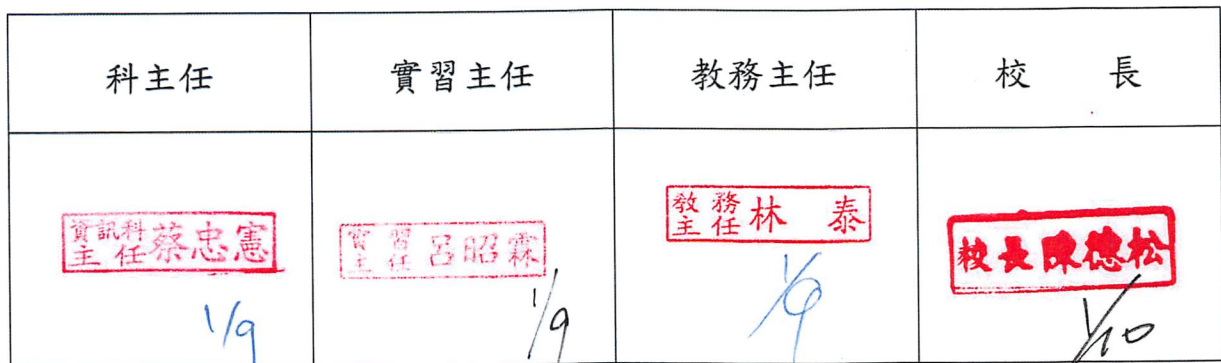 科主任
實習主任
教務主任
校長
資訊科主任 蔡忠憲
1/9
實習主任 呂昭霖
1/9
教務主任 林泰
1/9
校長陳德松
1/10